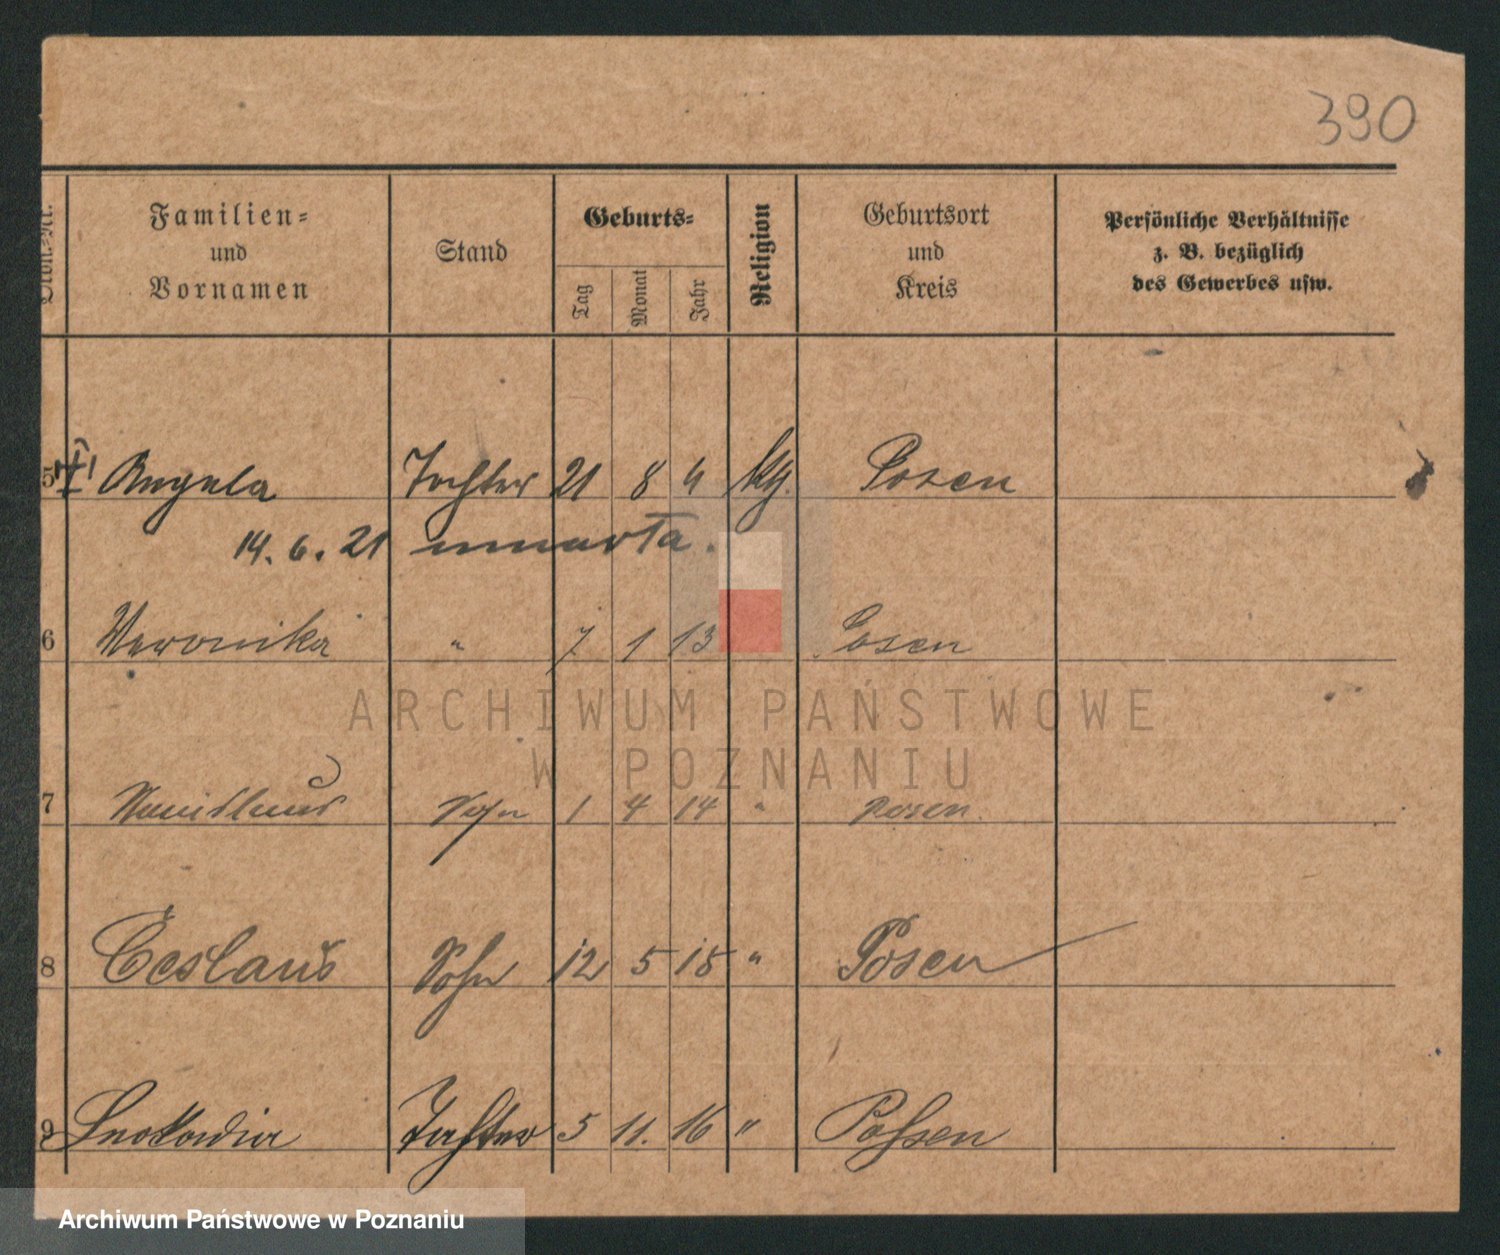 390
Familien=
und
Vornamen
Stand
Geburts=
Tag
Monat
Jahr
Religion
Geburtsort
und
Kreis
Persönliche Verhältnisse
z. B. bezüglich
des Gewerbes usw.
5 Angela Tochter 21 8 4 Posen
14. 6. 21 umarła.
6 Weronika " 7 1 13 Posen
7 Sohn 1 4 14 " Posen
8 Ceslaus Sohn 12 5 15 " Posen
9 Tochter 5 11. 16 " Possen
ARCHIWUM PAŃSTWOWE
W POZNANIU
Archiwum Państwowe w Poznaniu